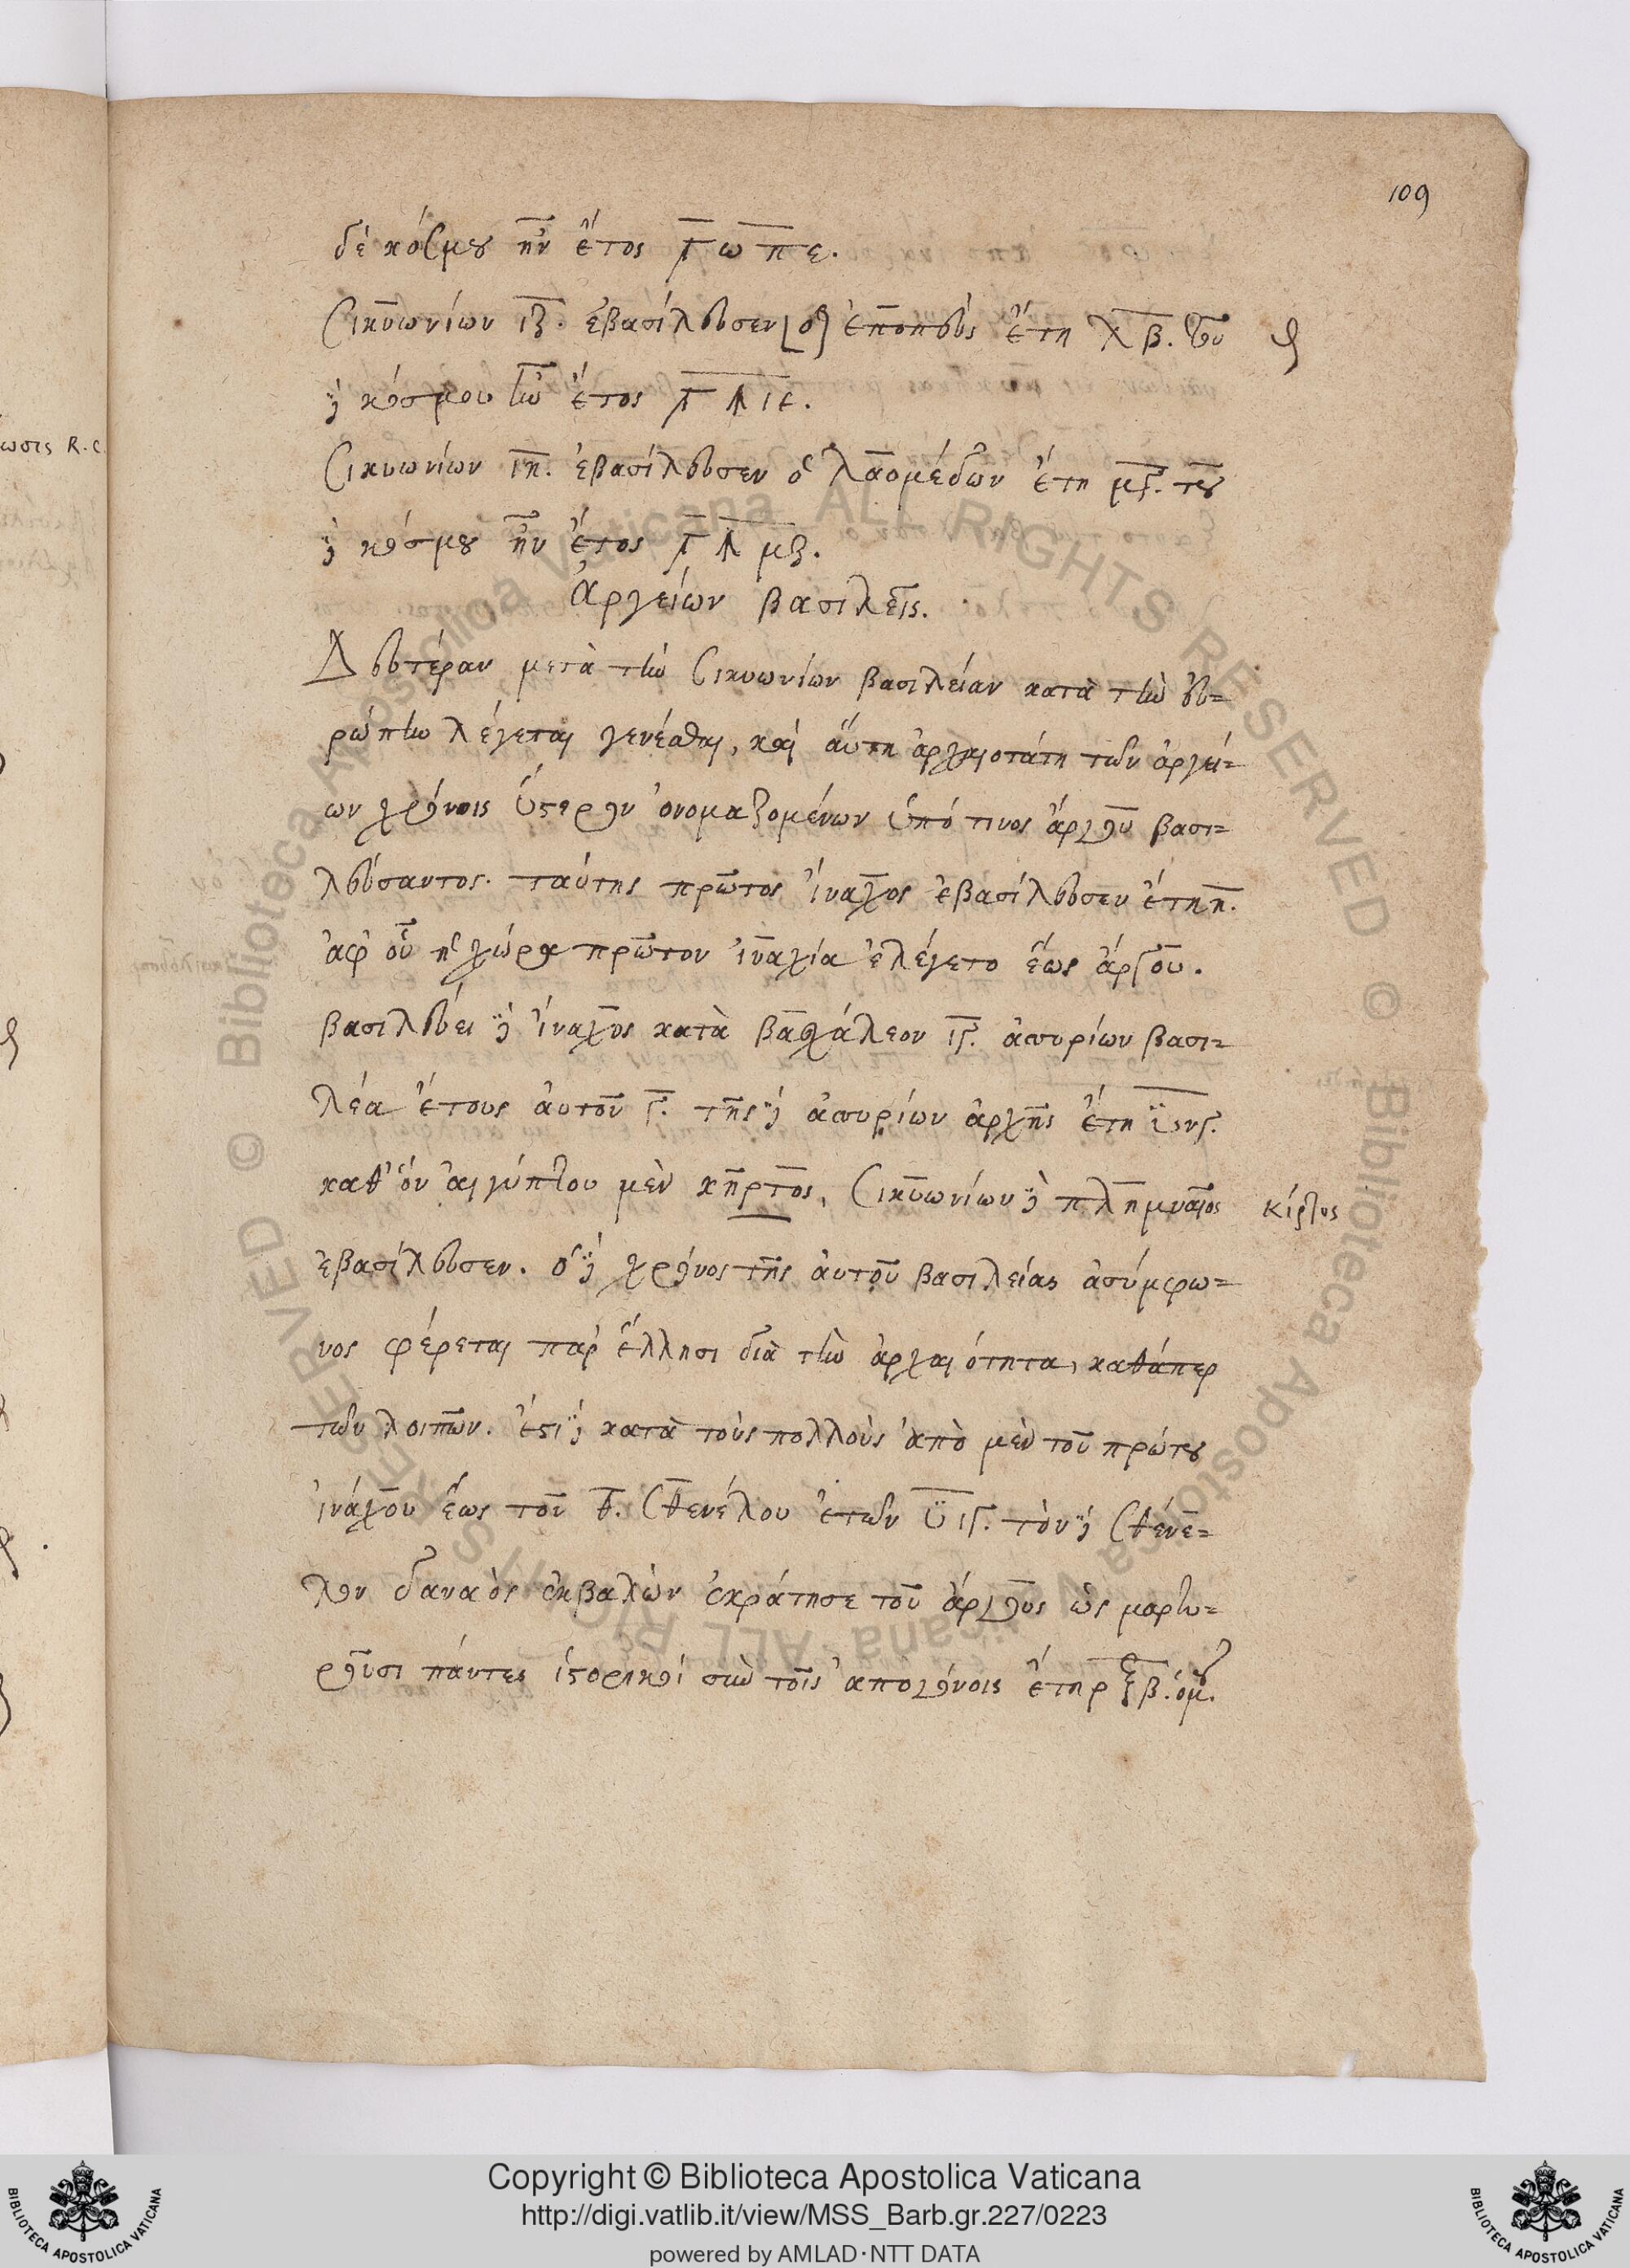 109
δὲ κόσμου ἦν ἔτος γωπε.
Σικυωνίων ιζ. ἐβασίλευσεν [ὁ] ἐποπεὺς ἔτη λβ. τοῦ
δὲ κόσμου ἦν ἔτος γϡιε.
Σικυωνίων ιη. ἐβασίλευσεν ὁ λαομέδων ἔτη μϛ. τοῦ
δὲ κόσμου ἦν ἔτος γϡμζ.
Ἀργείων βασιλεῖς.
Δευτέραν μετὰ τὴν Σικυωνίων βασιλείαν κατὰ τὴν εὐ=
ρώπην λέγεται γενέσθαι, καὶ αὕτη ἀρχαιοτάτη τῶν ἀργεί=
ων χρόνοις ὕστερον ὀνομαζομένων ὑπό τινος ἄργου βασι=
λεύσαντος. ταύτης πρῶτος ἴναχος ἐβασίλευσεν ἔτη
ἀφ' οὗ ἡ χώρα πρῶτον ἰναχία ἐλέγετο ἕως ἄργου.
βασιλεύει δὲ ἴναχος κατὰ ιϛ. ἀσσυρίων βασι=
λέα ἔτους αὐτοῦ ϛ. τῆς δὲ ἀσσυρίων ἀρχῆς ἔτη
καθ' ὃν αἰγύπτου μὲν κηρτος, Σικυωνίων δὲ πλημναῖος
κίρτος
ἐβασίλευσεν. ὁ δὲ χρόνος τῆς αὐτοῦ βασιλείας ἀσύμφω=
νος φέρεται παρ' ἕλλησι διὰ τὴν ἀρχαιότητα, καθάπερ
τῶν λοιπῶν. ἔστι δὲ κατὰ τοὺς πολλοὺς ἀπὸ μὲν τοῦ πρώτου
ἰνάχου ἕως τοῦ θ. Σθενέλου ἐτῶν υιϛ. τὸν δὲ Σθένε=
λον δαναὸς ἐκβαλὼν ἐκράτησε τοῦ ἄργους ὡς μαρτυ=
ροῦσι πάντες ἱστορικοὶ σὺν τοῖς ἀπογόνοις ἔτη ρξβ. ὁμοῦ
ωσις R.C.
Copyright © Biblioteca Apostolica Vaticana
http://digi.vatlib.it/view/MSS_Barb.gr.227/0223
powered by AMLAD·NTT DATA
BIBLIOTECA APOSTOLICA VATICANA
BIBLIOTECA APOSTOLICA VATICANA
© Biblioteca Apostolica Vaticana ALL RIGHTS RESERVED
© Biblioteca Apostolica Vaticana ALL RIGHTS RESERVED